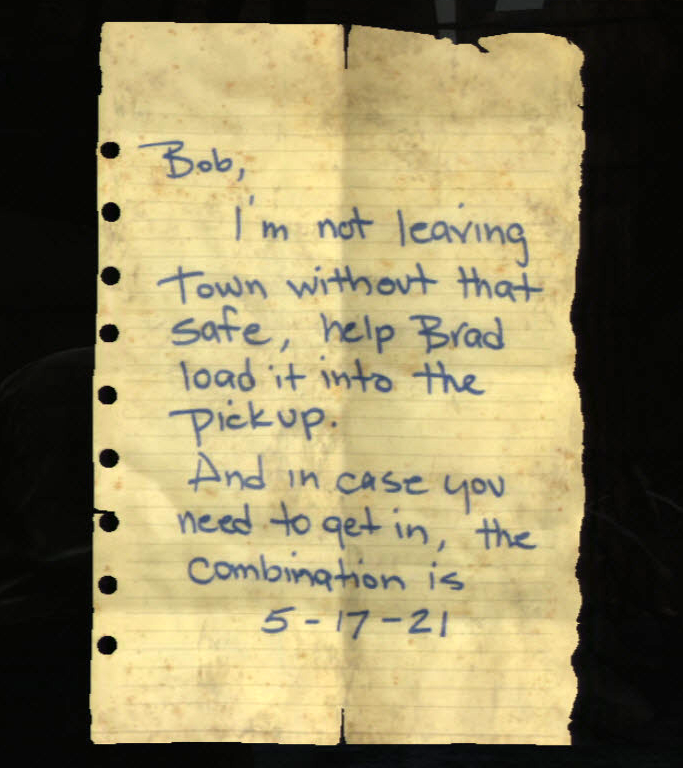 Bob,
I'm not leaving
Town without that
safe, help Brad
load it into the
pickup.
And in case you
need to get in, the
combination is
5-17-21